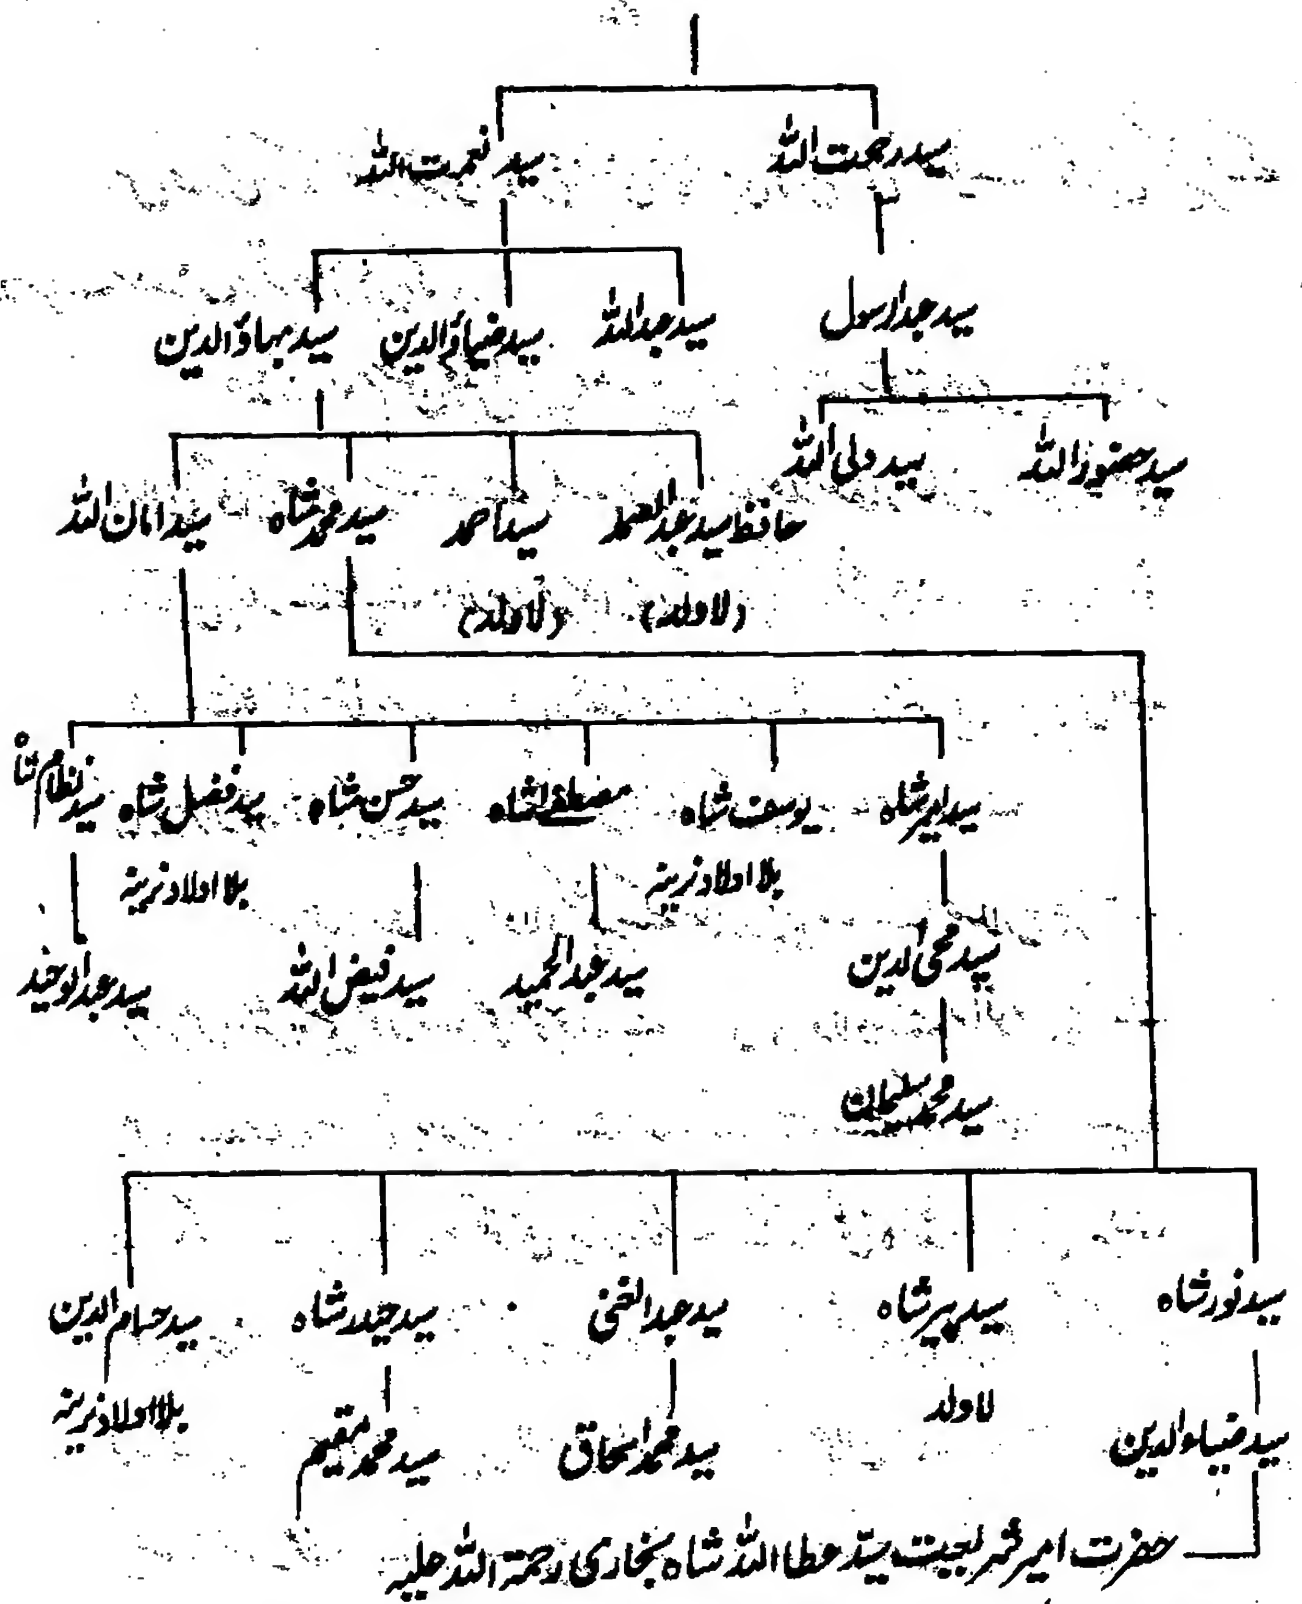 سید رحمت اللہ سید نعمت اللہ
سید عبدالرسول سید عبداللہ سید ضیاؤالدین سید بہاؤالدین
سید حضور اللہ سید ولی اللہ
حافظ سید عبدالصمد سید احمد سید محمد شاہ سید امان اللہ
(لاولد) (لاولد)
سید امیر شاہ یوسف شاہ مصطفےٰ شاہ سید حسن شاہ سید فضل شاہ سید نظام شاہ
بلا اولاد نرینہ بلا اولاد نرینہ
سید محی الدین سید عبدالحمید سید فیض اللہ سید عبدالوحید
سید محمد سلیمان
سید نور شاہ سید پیر شاہ سید عبدالغنی سید حیدر شاہ سید حسام الدین
لاولد بلا اولاد نرینہ
سید ضیاء الدین سید محمد اسحاق سید محمد مقیم
حضرت امیر شریعت سیّد عطا اللہ شاہ بخاری رحمۃ اللہ علیہ